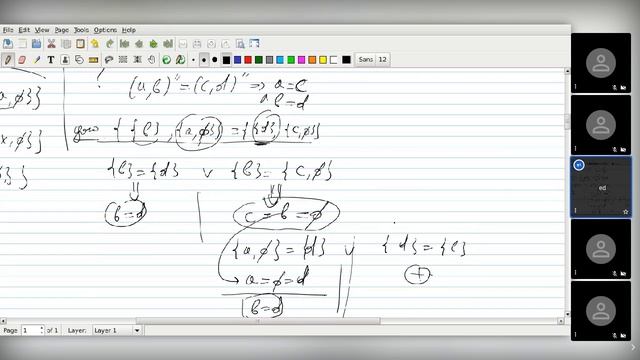 File Edit View Page Tools Options Help
Sans 12
!
(a,b)" = (c,d)" ⇒ a=c
a,ϕ}}
^ b=d
{ {b}, {a,ϕ}} = {{d}{c,ϕ}}
x,ϕ}}
{b}={d} v {b}={c,ϕ}
b=d
c=b=ϕ
ed
{a,ϕ}={d} v {d}={b}
a=ϕ=d
+
b=d
Page 1 of 1 Layer: Layer 1